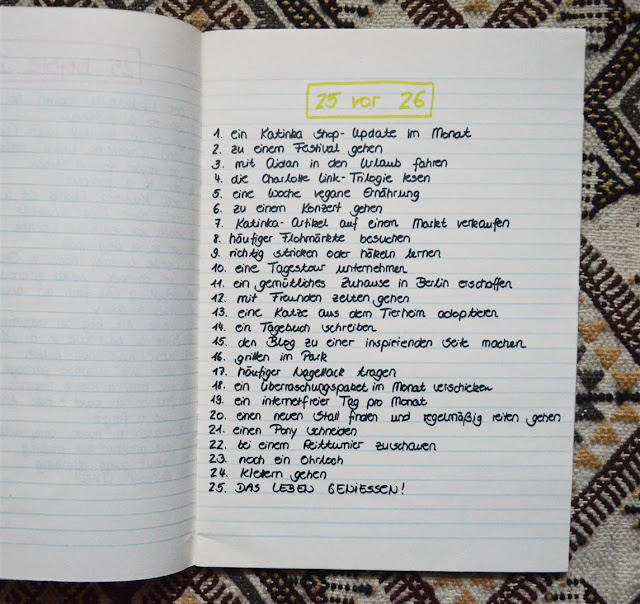 25 vor 26
1. ein Katinka Shop-Update im Monat
2. zu einem Festival gehen
3. mit Aidan in den Urlaub fahren
4. die Charlotte Link-Trilogie lesen
5. eine Woche vegane Ernährung
6. zu einem Konzert gehen
7. Katinka-Artikel auf einem Markt verkaufen
8. häufiger Flohmärkte besuchen
9. richtig stricken oder häkeln lernen
10. eine Tagestour unternehmen
11. ein gemütliches Zuhause in Berlin erschaffen
12. mit Freunden zelten gehen
13. eine Katze aus dem Tierheim adoptieren
14. ein Tagebuch schreiben
15. den Blog zu einer inspirierenden Seite machen
16. grillen im Park
17. häufiger Nagellack tragen
18. ein Überraschungspaket im Monat verschicken
19. ein internetfreier Tag pro Monat
20. einen neuen Stall finden und regelmäßig reiten gehen
21. einen Pony schneiden
22. bei einem Reitturnier zuschauen
23. noch ein Ohrloch
24. Klettern gehen
25. DAS LEBEN GENIESSEN!